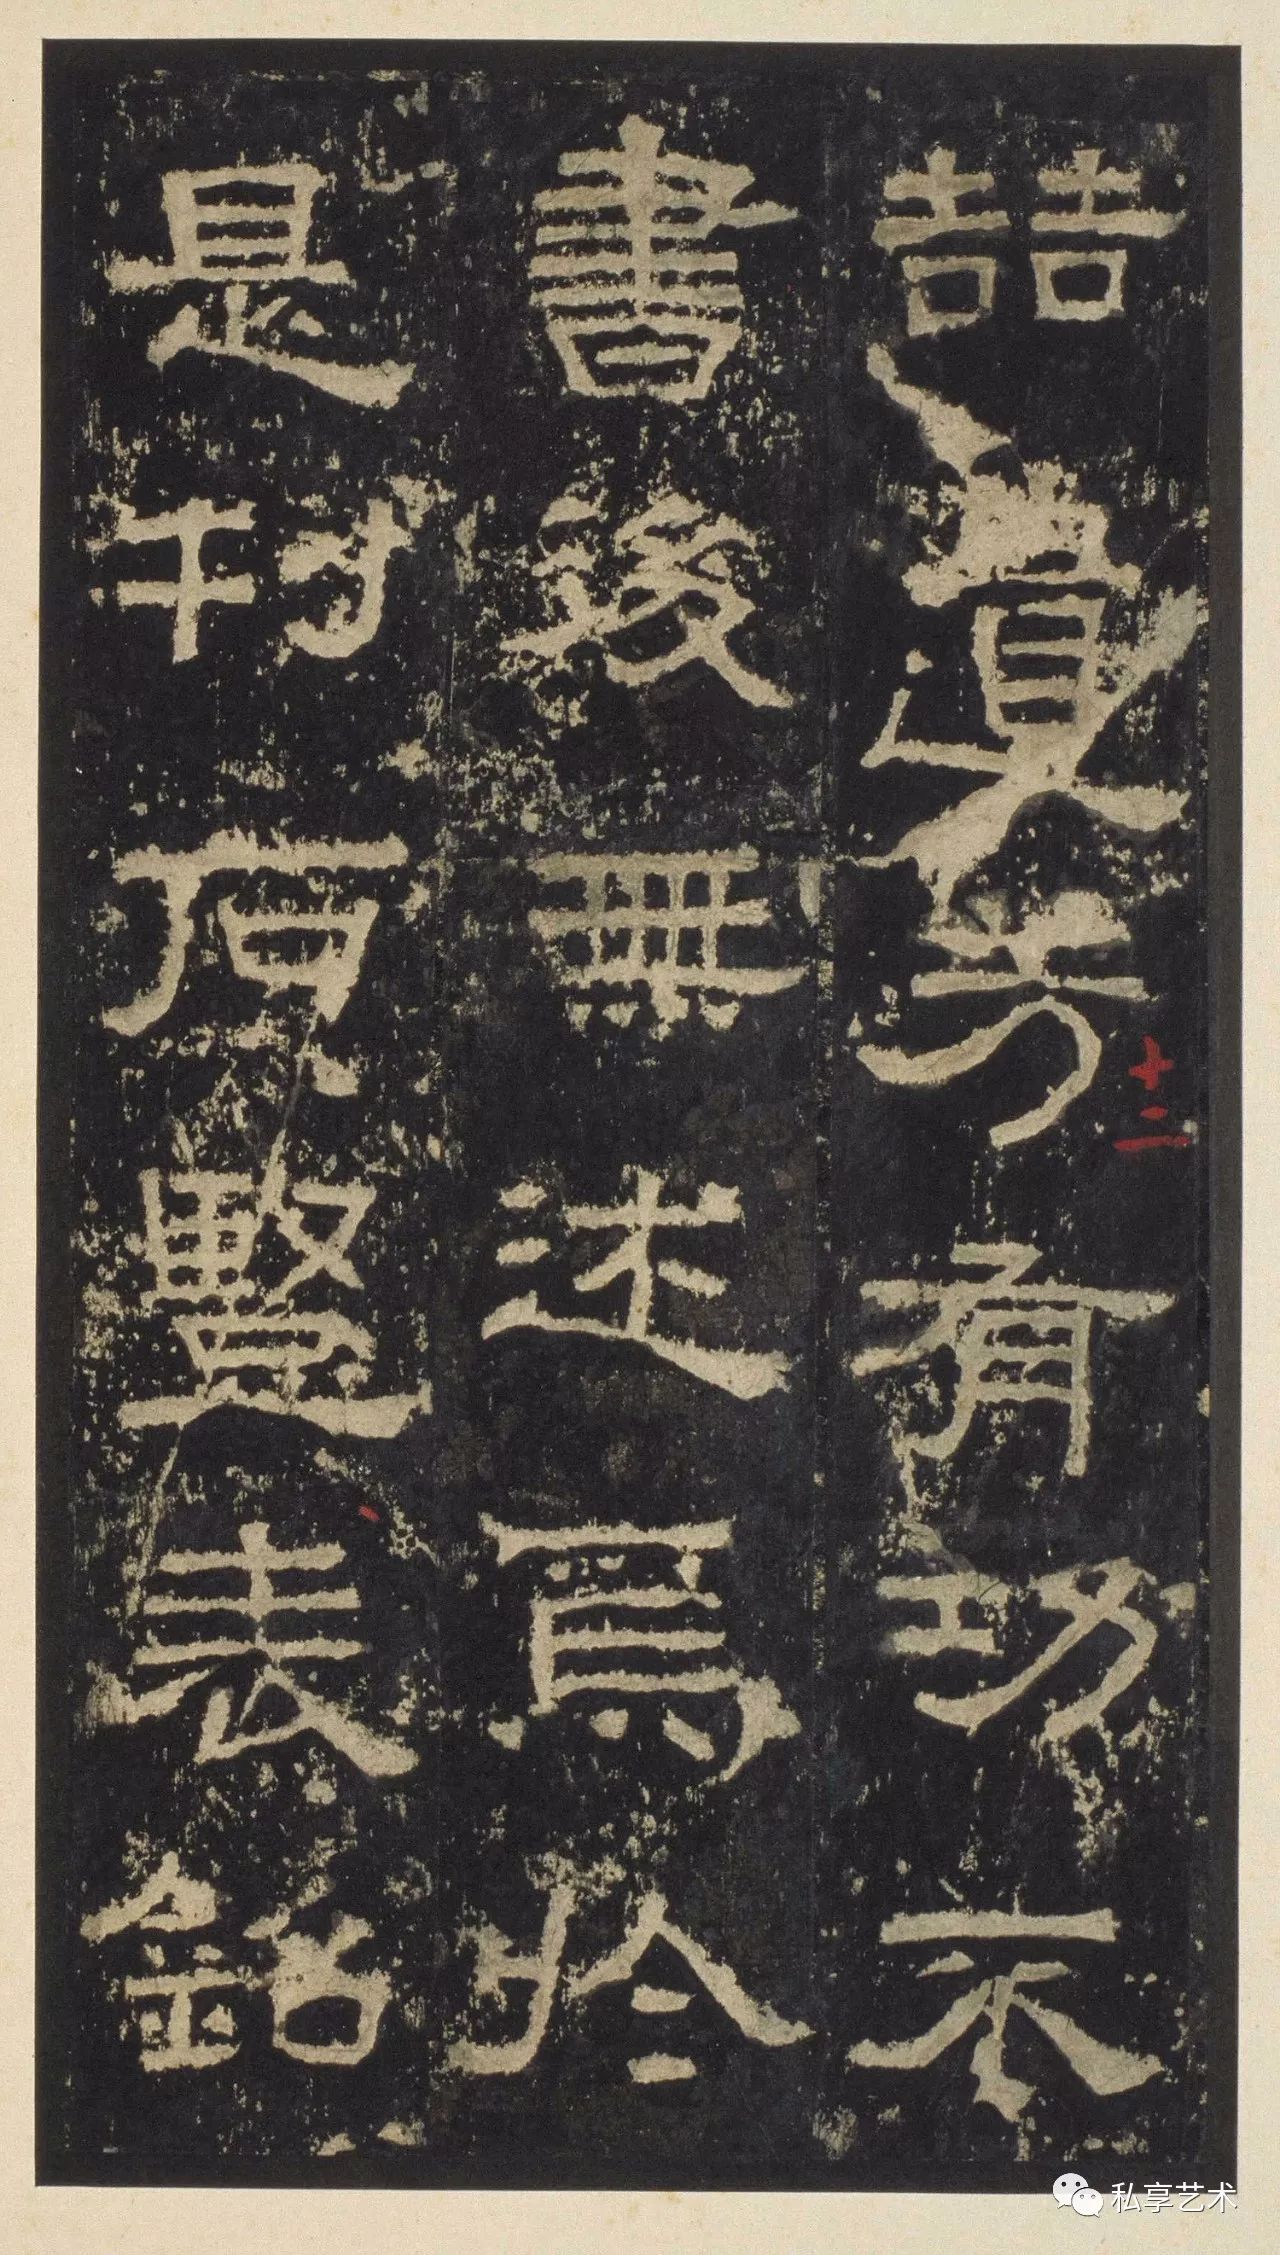 喆遺芳有功不
書後無述焉於
是刊石豎表銘
十二
私享艺术